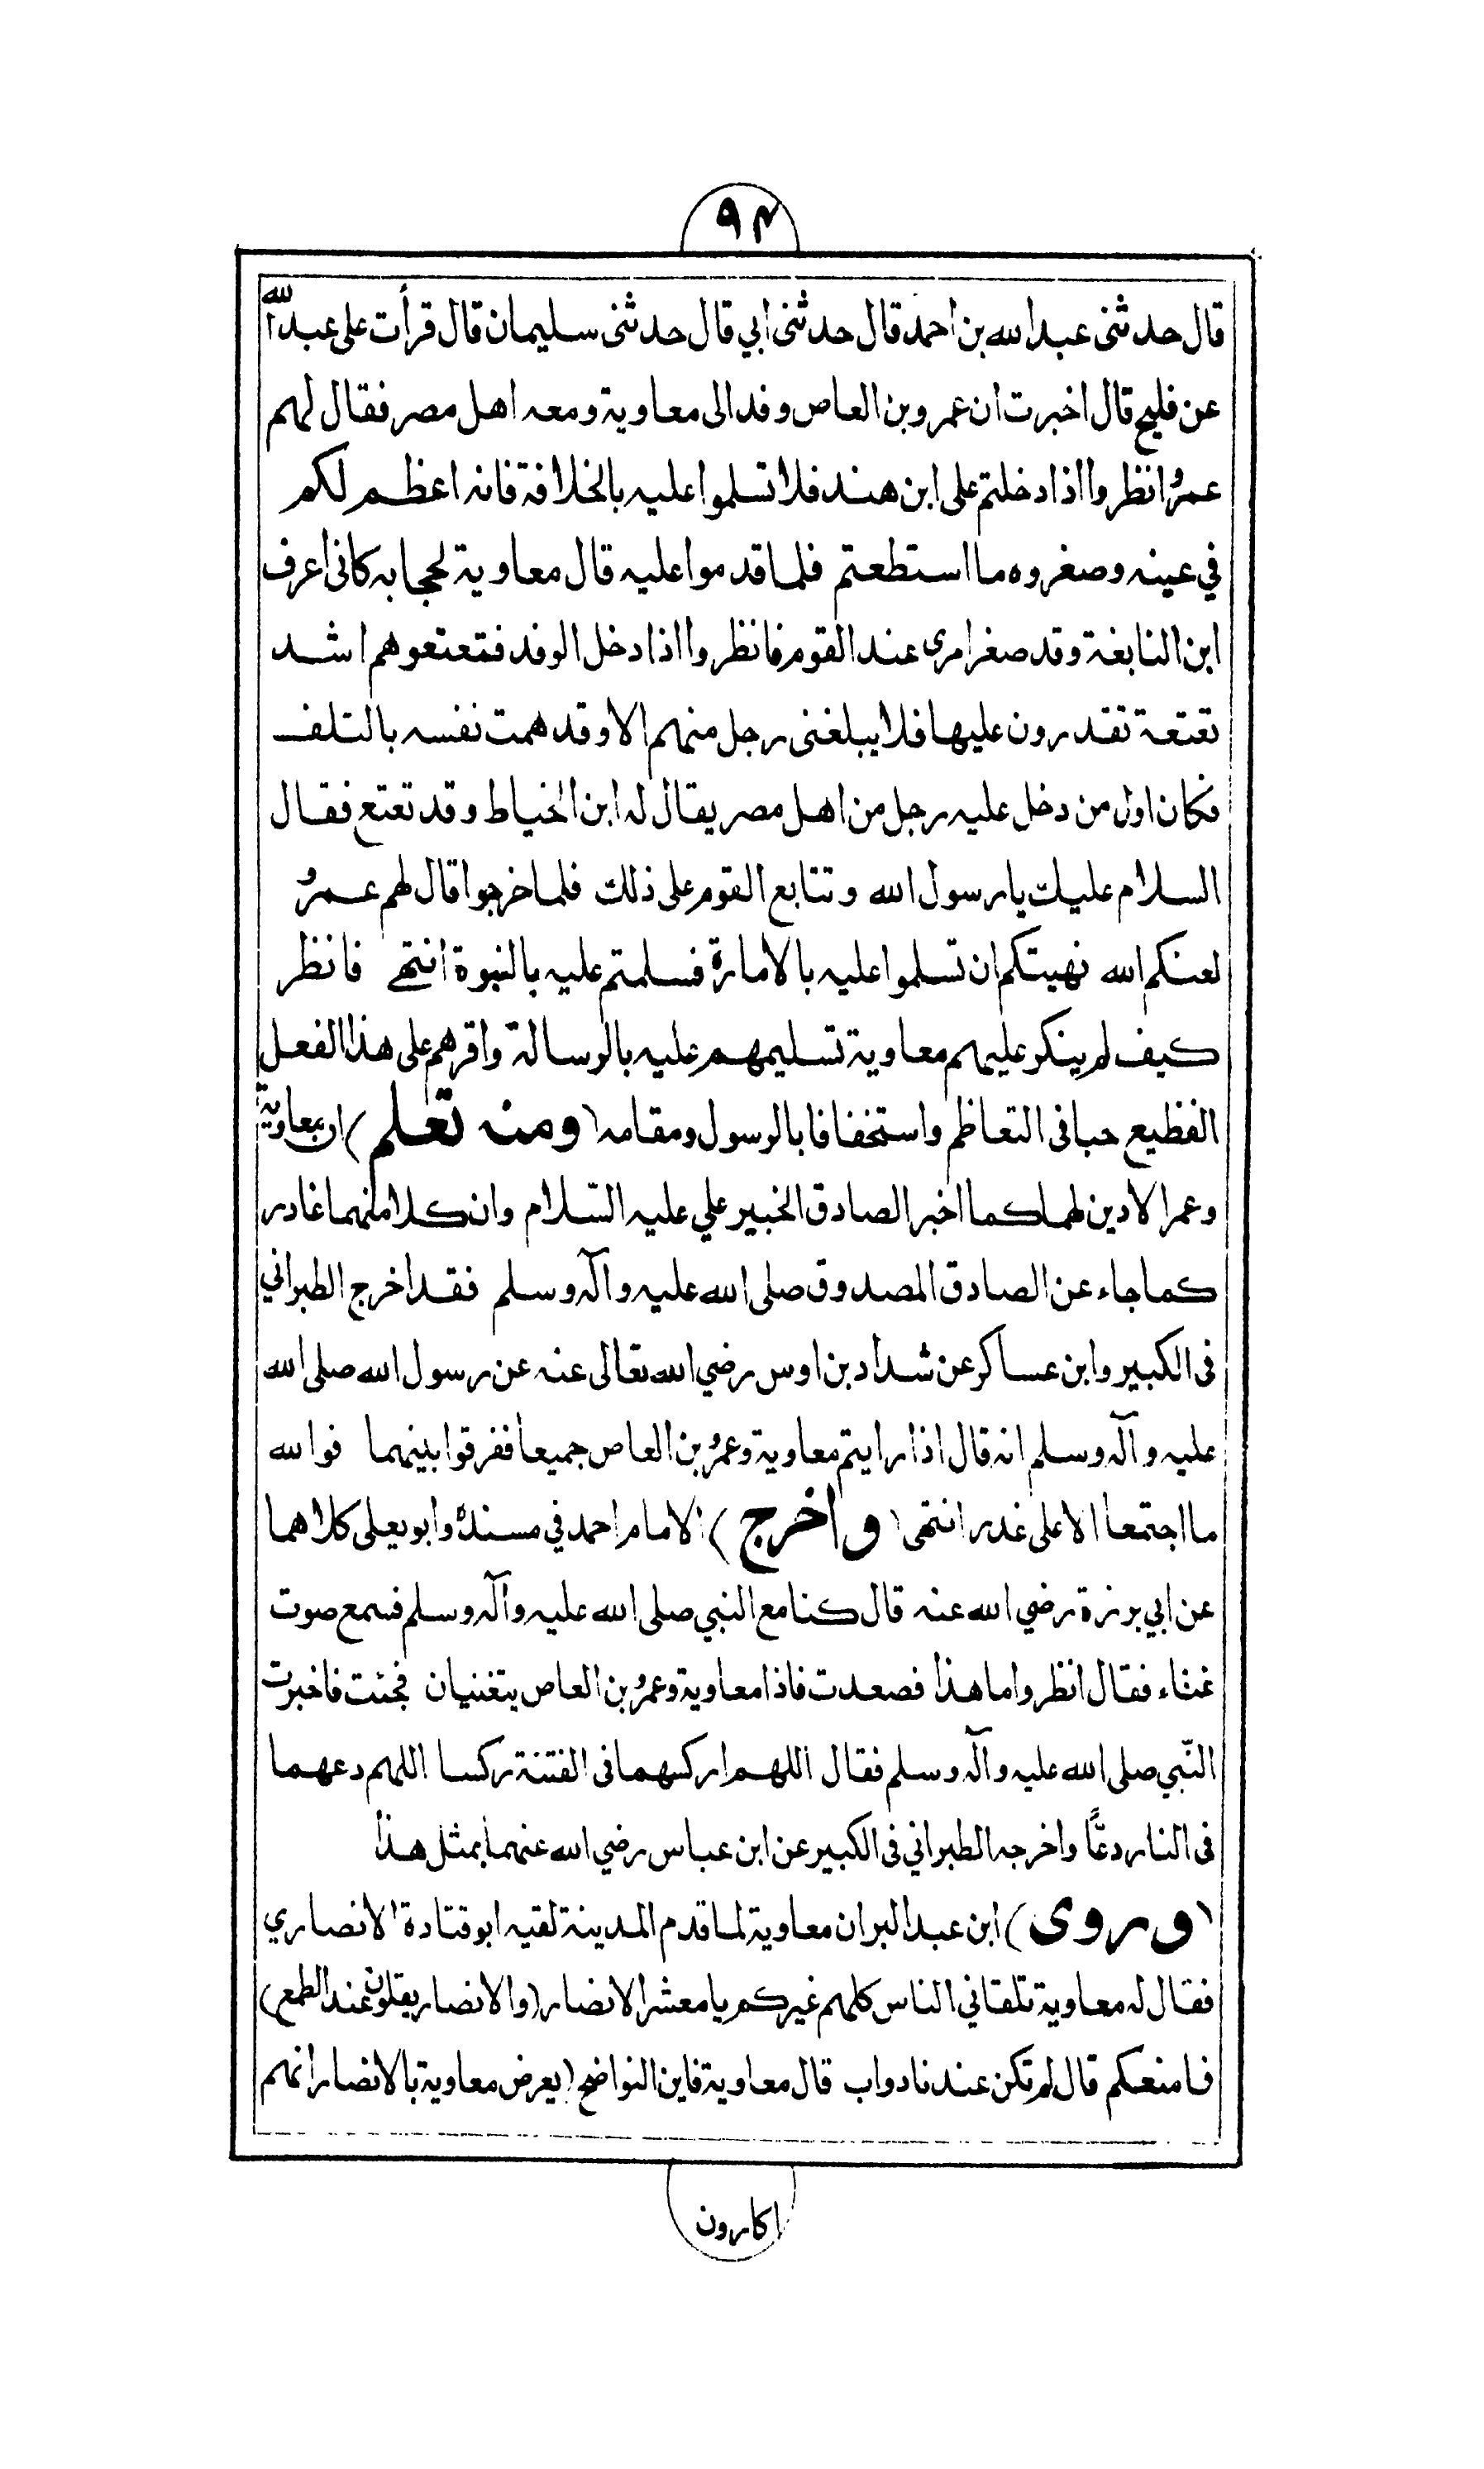 ٩٤
قال حدثنى عبدالله بن احمد قال حدثنى ابي قال حدثنى سليمان قال قرأت على عبدالله
عن فليح قال اخبرت ان عمرو بن العاص وفد الى معاوية ومعه اهل مصر فقال لهم
عمرو انظروا اذا دخلتم على ابن هند فلا تسلموا عليه بالخلافة فانه اعظم لكم
في عينه وصغروه ما استطعتم فلما قدموا عليه قال معاوية لحجابه كانى اعرف
ابن النابغة وقد صغر امرى عند القوم فانظروا اذا دخل الوفد فتعتعوهم اشد
تعتعة تقدرون عليها فلا يبلغنى رجل منهم الا وقد همت نفسه بالتلف
فكان اول من دخل عليه رجل من اهل مصر يقال له ابن الخياط وقد تعتع فقال
السلام عليك يا رسول الله وتتابع القوم على ذلك فلما خرجوا قال لهم عمرو
لعنكم الله نهيتكم ان تسلموا عليه بالامارة فسلمتم عليه بالنبوة انتهى فانظر
كيف لم ينكر عليهم معاوية تسليمهم عليه بالرسالة واقرهم على هذا الفعل
الفظيع حبا فى التعاظم واستخفافا بالرسول ومقامه (ومنه تعلم) ان معاوية
وعمرا لا دين لهما كما اخبر الصادق الخبير علي عليه السّلام وان كلا منهما غادر
كما جاء عن الصادق المصدوق صلى الله عليه وآله وسلم فقد اخرج الطبراني
فى الكبير وابن عساكر عن شداد بن اوس رضي الله تعالى عنه عن رسول الله صلى الله
عليه وآله وسلم انه قال اذا رايتم معاوية وعمرو بن العاص جميعا ففرقوا بينهما فوالله
ما اجتمعا الا على غدر انتهى (واخرج) الامام احمد في مسنده وابو يعلى كلاهما
عن ابي برزة رضي الله عنه قال كنا مع النبي صلى الله عليه وآله وسلم فسمع صوت
غناء فقال انظروا ما هذا فصعدت فاذا معاوية وعمرو بن العاص يتغنيان فجئت فاخبرت
النّبي صلى الله عليه وآله وسلم فقال اللهم اركسهما فى الفتنة ركسا اللهم دعهما
فى النار دعًّا واخرجه الطبراني فى الكبير عن ابن عباس رضي الله عنهما بمثل هذا
(وروى) ابن عبد البر ان معاوية لما قدم المدينة لقيه ابو قتادة الانصاري
فقال له معاوية تلقاني الناس كلهم غيركم يا معشر الانصار (والانصار يقلون عند الطمع)
فما منعكم قال لم تكن عندنا دواب قال معاوية فاين النواضح (يعرض معاوية بالانصار انهم
اكارون